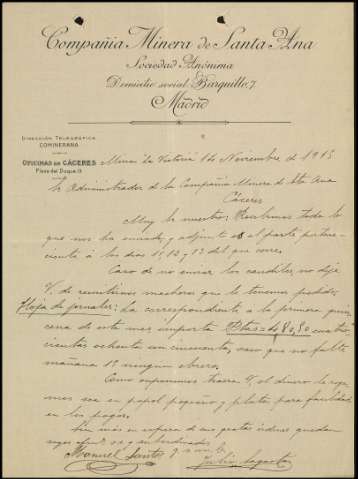 Compañia Minera de Santa Ana
Sociedad Anónima
Domicilio social: Barquillo, 7
Madrid
DIRECCIÓN TELEGRÁFICA
COMINERANA
OFICINAS DE CÁCERES
Plaza del Duque, 9
Minas La Victoria 14 Noviembre de 1915
Sr Administrador de la Compañia Minera de Sta Ana
Cáceres
Muy Sr nuestro: Recibimos todo lo
que nos ha enviado, y adjunto el parte perteneciente
á los dias 11, 12, y 13 del que corre.
Caso de no enviar los candiles, no deje
V. de remitirnos mechas que le tenemos pedido.
Hoja de jornales: la correspondiente a la primera quincena
de este mes importa Ptas = 480,50 cuatrocientas
ochenta con cincuenta, caso que no falte
mañana 15 ningun obrero.
Como suponemos traera V. el dinero
sea en papel pequeño y plata para facilidad
en los pagos.
Sin mas en espera de sus gratas ordenes quedan
suyos afmos ss y subordinados
Manuel Santos y
Julio